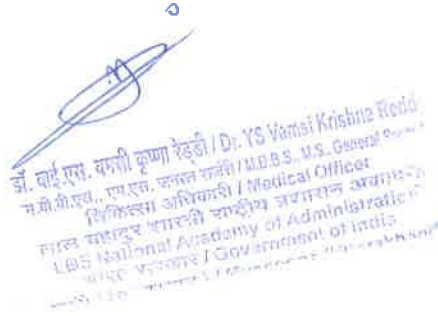 डॉ. वाई.एस. वमसी कृष्णा रेड्डी / Dr. YS Vamsi Krishna Reddy
एम.बी.बी.एस., एम.एस. जनरल सर्जरी / M.B.B.S., M.S. General
चिकित्सा अधिकारी / Medical Officer
लाल बहादुर शास्त्री राष्ट्रीय प्रशासन अकादमी
LBS National Academy of Administration
भारत सरकार / Government of India